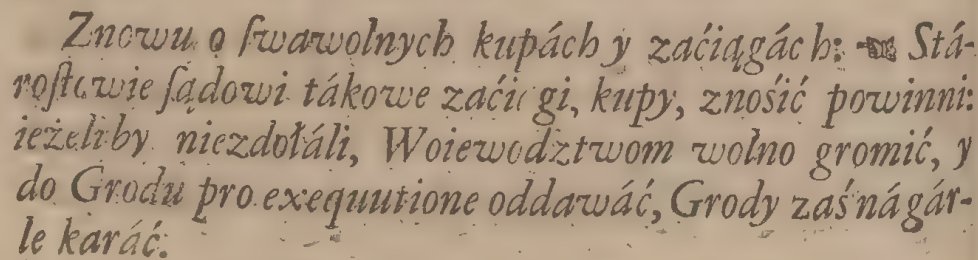 Znowu o ſwawolnych kupách y záćiągách: ☞ Stá-
roſtowie ſądowi tákowe záćiągi, kupy, znośić powinni:
ieżeliby niezdołáli, Woiewodztwom wolno gromić, y
do Grodu pro exequutione oddawáć, Grody záś ná gár-
le karáć.